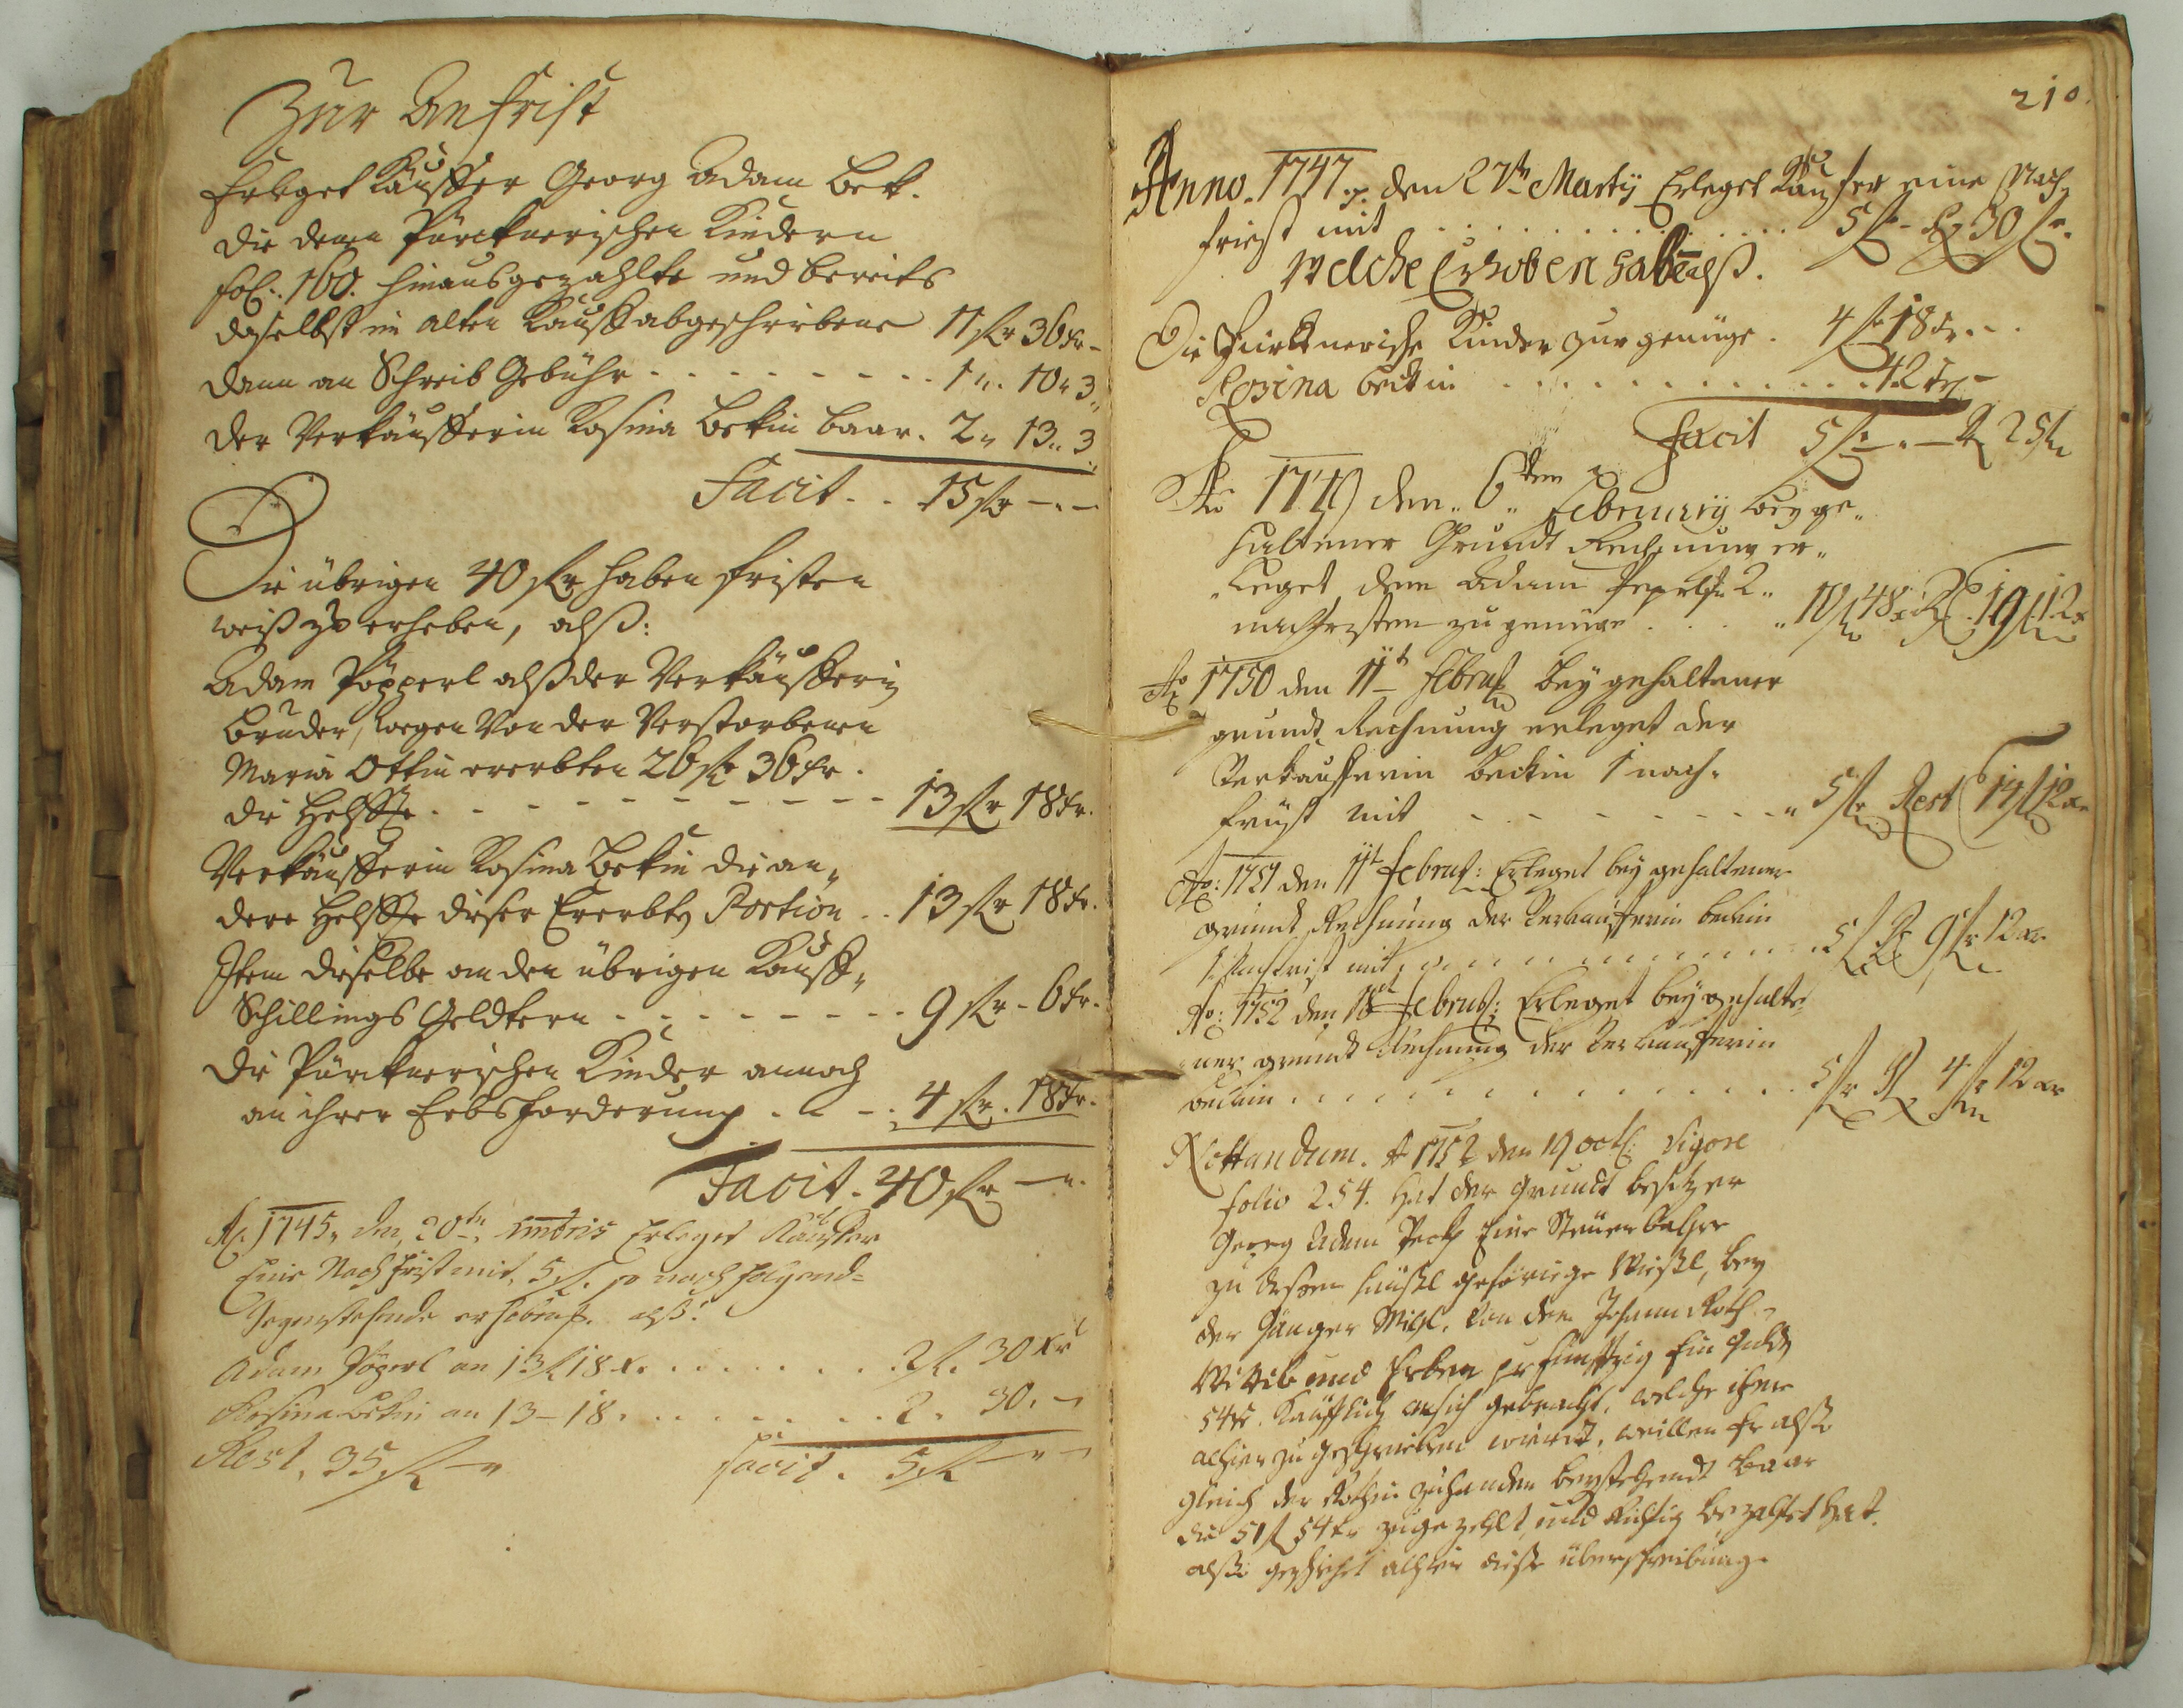 Zur Anfrist
Erleget Kauffer Georg Adam Bek.
die denen Pürcknerischen Kindern
fol: 160. hinausgezahlte und bereits
daselbst in alten Kauff abgeschriebene 11 fl 36 kr -
dann an Schreib Gebühr - - - - - - - - 1 „ 10 „ 3 „
der Verkäufferin Rosina Bekin baar. 2 „ 13 „ 3 „
Facit . . 15 fl — „ —
Die übrigen 40 fl haben fristen
weiß zu erheben, alß:
Adam Pöpperl alß der Verkäufferin
Bruder, wegen von der Verstorbenen
Maria Ottin ererbten 26 fl 36 kr.
die Helffte - - - - - - - - - - - 13 fl 18 kr.
Verkäufferin Rosina Bekin die an„
dere Helffte dieser Ererbten Portion . . 13 fl 18 kr.
Item dieselbe an den übrigen Kauff„
Schillings Geldtern - - - - - - - - 9 fl - 6 kr.
Die Pürcknerischen Kinder annoch
an ihrer Erbsforderung . - - . 4 fl . 18 kr.
Facit . 40 fl — „ .
Ao. 1745, den 20ten, Xmbris Erleget Kauffer
Eine Nachfrist mit, 5 fl. so nach folgend=
gegenstehende erhoben. alß.
Adam Pöperl an 13 fl 18 x. . . . . . . . 2 fl. 30 Kr
Rosina Bekin an 13 - 18 . . . . . . . . 2 . 30 . -
Rest. 35 fl — „ Facit . 5 fl — „ -
210.
Anno. 1747. den 27ten Marty Erleget Kauffer eine Nach
friest mit . . . . . . . . . . . . . . . . 5 fl - R 30 fl.
Welche Erhoben haben alß.
Die Pürcknerische Kinder zur genüge . 4 fl 18 kr. -
Rosina Beckin . . . . . . . . . . . . . 42 kr -
Facit 5 fl „ — R 25 fl
Ao 1749 den „ 6ten February bey ge„
haltener Grundt Rechnung er„
„leget dem Adam Peperl 2 „
nachfristen zu genüge . . . . „ 10 fl 48 x R. 19 fl 12 x
Ao 1750 den 11t Febru: bey gehaltener
grundt Rechnung erleget der
Verkaufferin Beckin 1 nach„
friest mit - - - - - - - - - - „ 5 fl Rest 14 fl 12 xr
Ao: 1751 den 11t Febru: Erleget bey gehaltener
grundt Rechnung der Verkaufferin Beckin
1 Nachfrist mit . . . . . . . . . . . 5 fl R 9 fl 12 xr
Ao: 1752 den 18t Febru: Erleget bey gehalte„
„ner grundt Rechnung der Verkaufferin
Beckin . . . . . . . . . . . . . . . . 5 fl R 4 fl 12 xr
Nottandum. Ao 1752 den 19 oct: Vigore
folio 254. Hat der grundt besitzer
Georg Adam Peck Eine Steuerbahre
zu dessen häußl gehörige Wießl, bey
der Hänger Wißl. von dem Johann Roth
Wittib und Erben pr funffzig Ein gulden
54 xr. Käufflich an sich gebracht, welche ihme
alhier zu geschrieben wirdt, weillen Er alß
gleich der Rothin zuhanden beystehendt baar
die 51 fl 54 kr zugezehlt und Richtig bezahlt hat.
alß geschiehet alhier diese überschreibung.